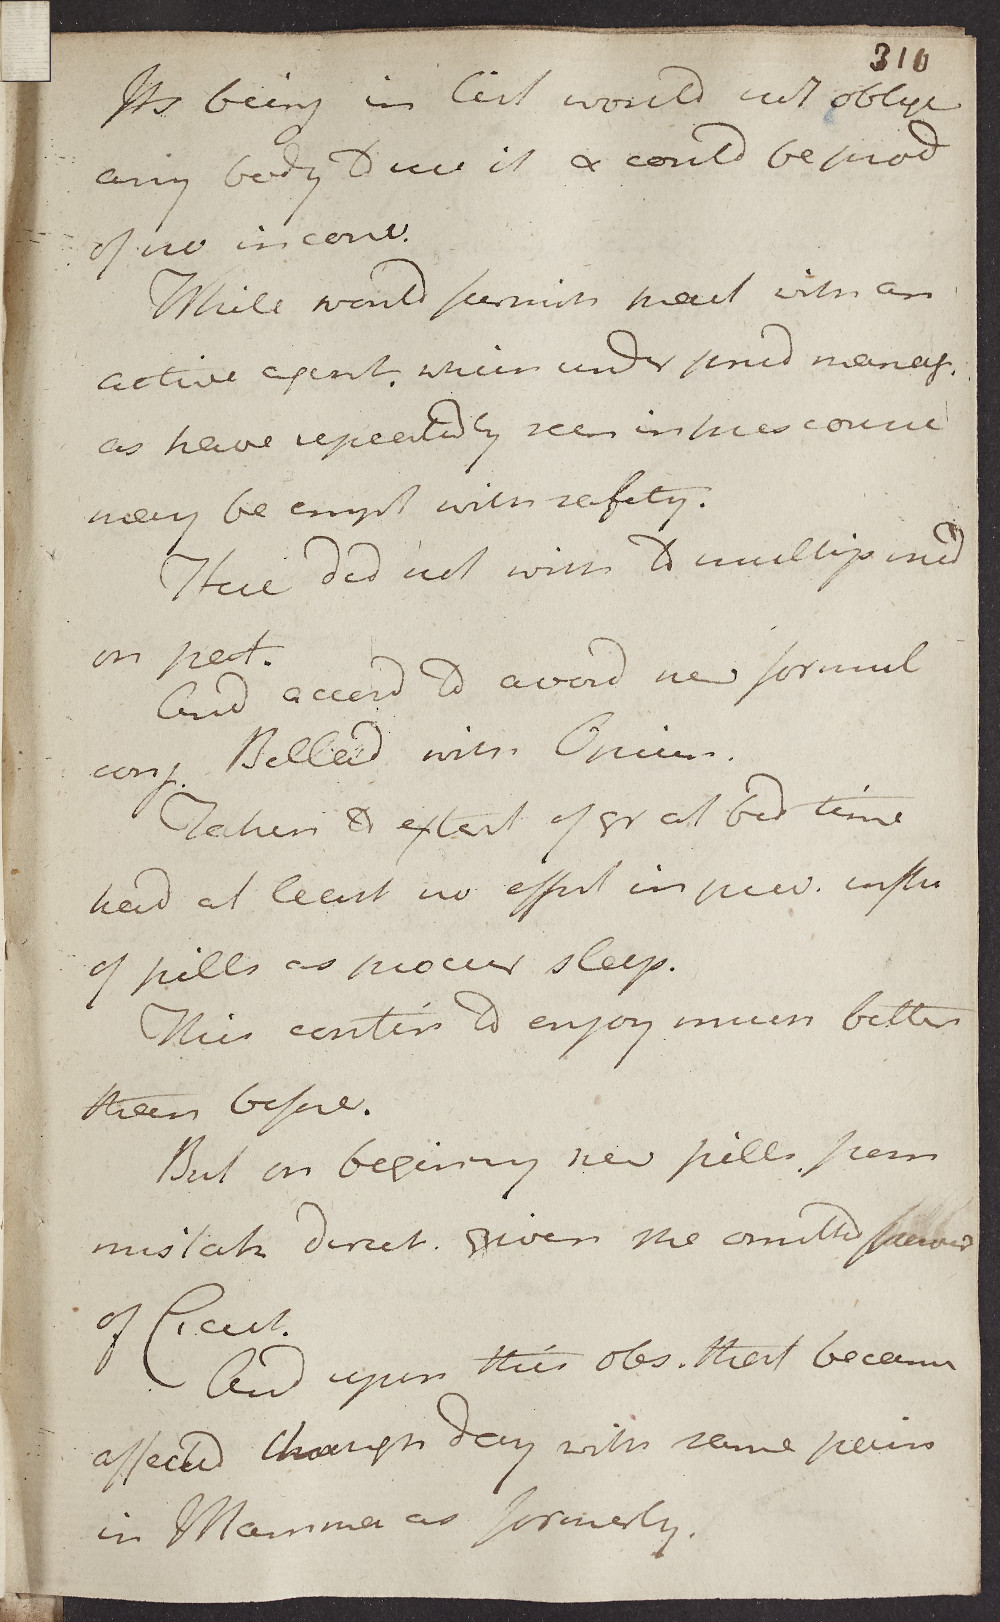 310
Its being in list would not oblige
any body to use it & could be prod
of no inconv.
While would furnish pract with an
active agent. which under prud manag.
as have repeatedly seen in pres course
may be empl with safety.
Here did not wish to multip med
on pat.
And accord to avoid new formul
conj. Bellad with Opium.
Taken to extent of gr at bed time
had at least no effect in prev. influ
of pills as procur sleep.
This contin to enjoy much better
than before.
But on begining new pills from
mistak direct. given she omitted
of Cicut.
And upon this obs. that became
affected through day with same pain
in Mamma as formerly.